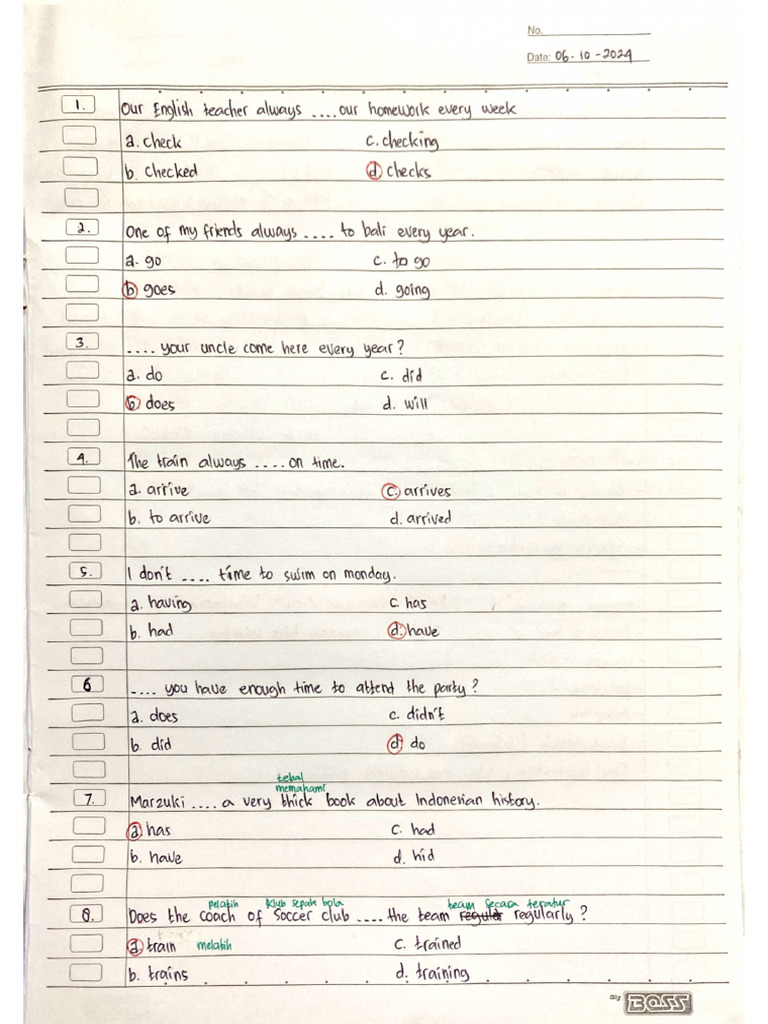 No.
Date: 06-10-2024
1. Our English teacher always .... our homework every week
a. check c. checking
b. checked d checks
2. One of my friends always .... to bali every year.
a. go c. to go
b goes d. going
3. .... your uncle come here every year?
a. do c. did
b does d. will
4. The train always .... on time.
a. arrive c. arrives
b. to arrive d. arrived
5. I don't .... time to swim on monday.
a. having c. has
b. had d. have
6 .... you have enough time to attend the party?
a. does c. didn't
b. did d do
tebal
memahami
7. Marzuki .... a very thick book about Indonesian history.
a has c. had
b. have d. hid
pelatih klub sepak bola team secara teratur
8. Does the coach of soccer club .... the team regular regularly?
a train melatih c. trained
b. trains d. training
Big BOSS